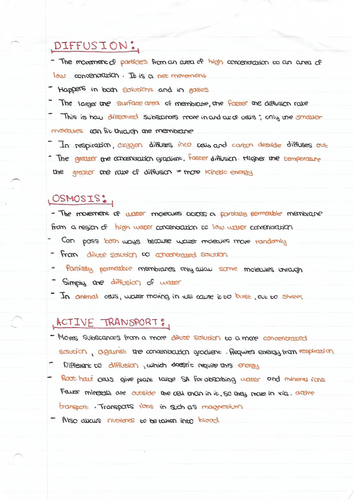 DIFFUSION:
- The movement of particles from an area of high concentration to an area of
low concentration. It is a net movement
- Happens in both solutions and in gases
- The larger the surface area of membrane, the faster the diffusion rate
- This is how dissolved substances move in and out of cells; only the smaller
molecules can fit through the membrane
- In respiration, oxygen diffuses into cells and carbon dioxide diffuses out
- The greater the concentration gradient, faster diffusion. Higher the temperature
the greater the rate of diffusion = more kinetic energy
OSMOSIS:
- The movement of water molecules across a partially permeable membrane
from a region of high water concentration to low water concentration
- Can pass both ways because water molecules move randomly
- From dilute solution to concentrated solution
- Partially permeable membranes only allow some molecules through
- Simply the diffusion of water
- In animal cells, water moving in will cause it to burst, out to shrivel
ACTIVE TRANSPORT:
- Moves substances from a more dilute solution to a more concentrated
solution, against the concentration gradient. Requires energy from respiration
- Different to diffusion, which doesn't require this energy
- Root hair cells give plant large SA for absorbing water and mineral ions
Fewer minerals are outside the cell than in it, so they move in via active
transport. Transports ions in such as magnesium
- Also allows nutrients to be taken into blood